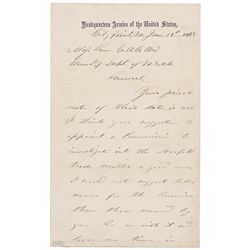 Headquarters Armies of the United States,
City Point, Va. Jan. 1865.
Maj. Gen.
Comd'g Dept. of
General,
Your private
note of this date is
I think your suggestion to
appoint a Commission to
investigate into the Norfolk
trade matter a good one.
I could not suggest better
names for the Commission
than those named by
you. Go on with it and
lose no time in